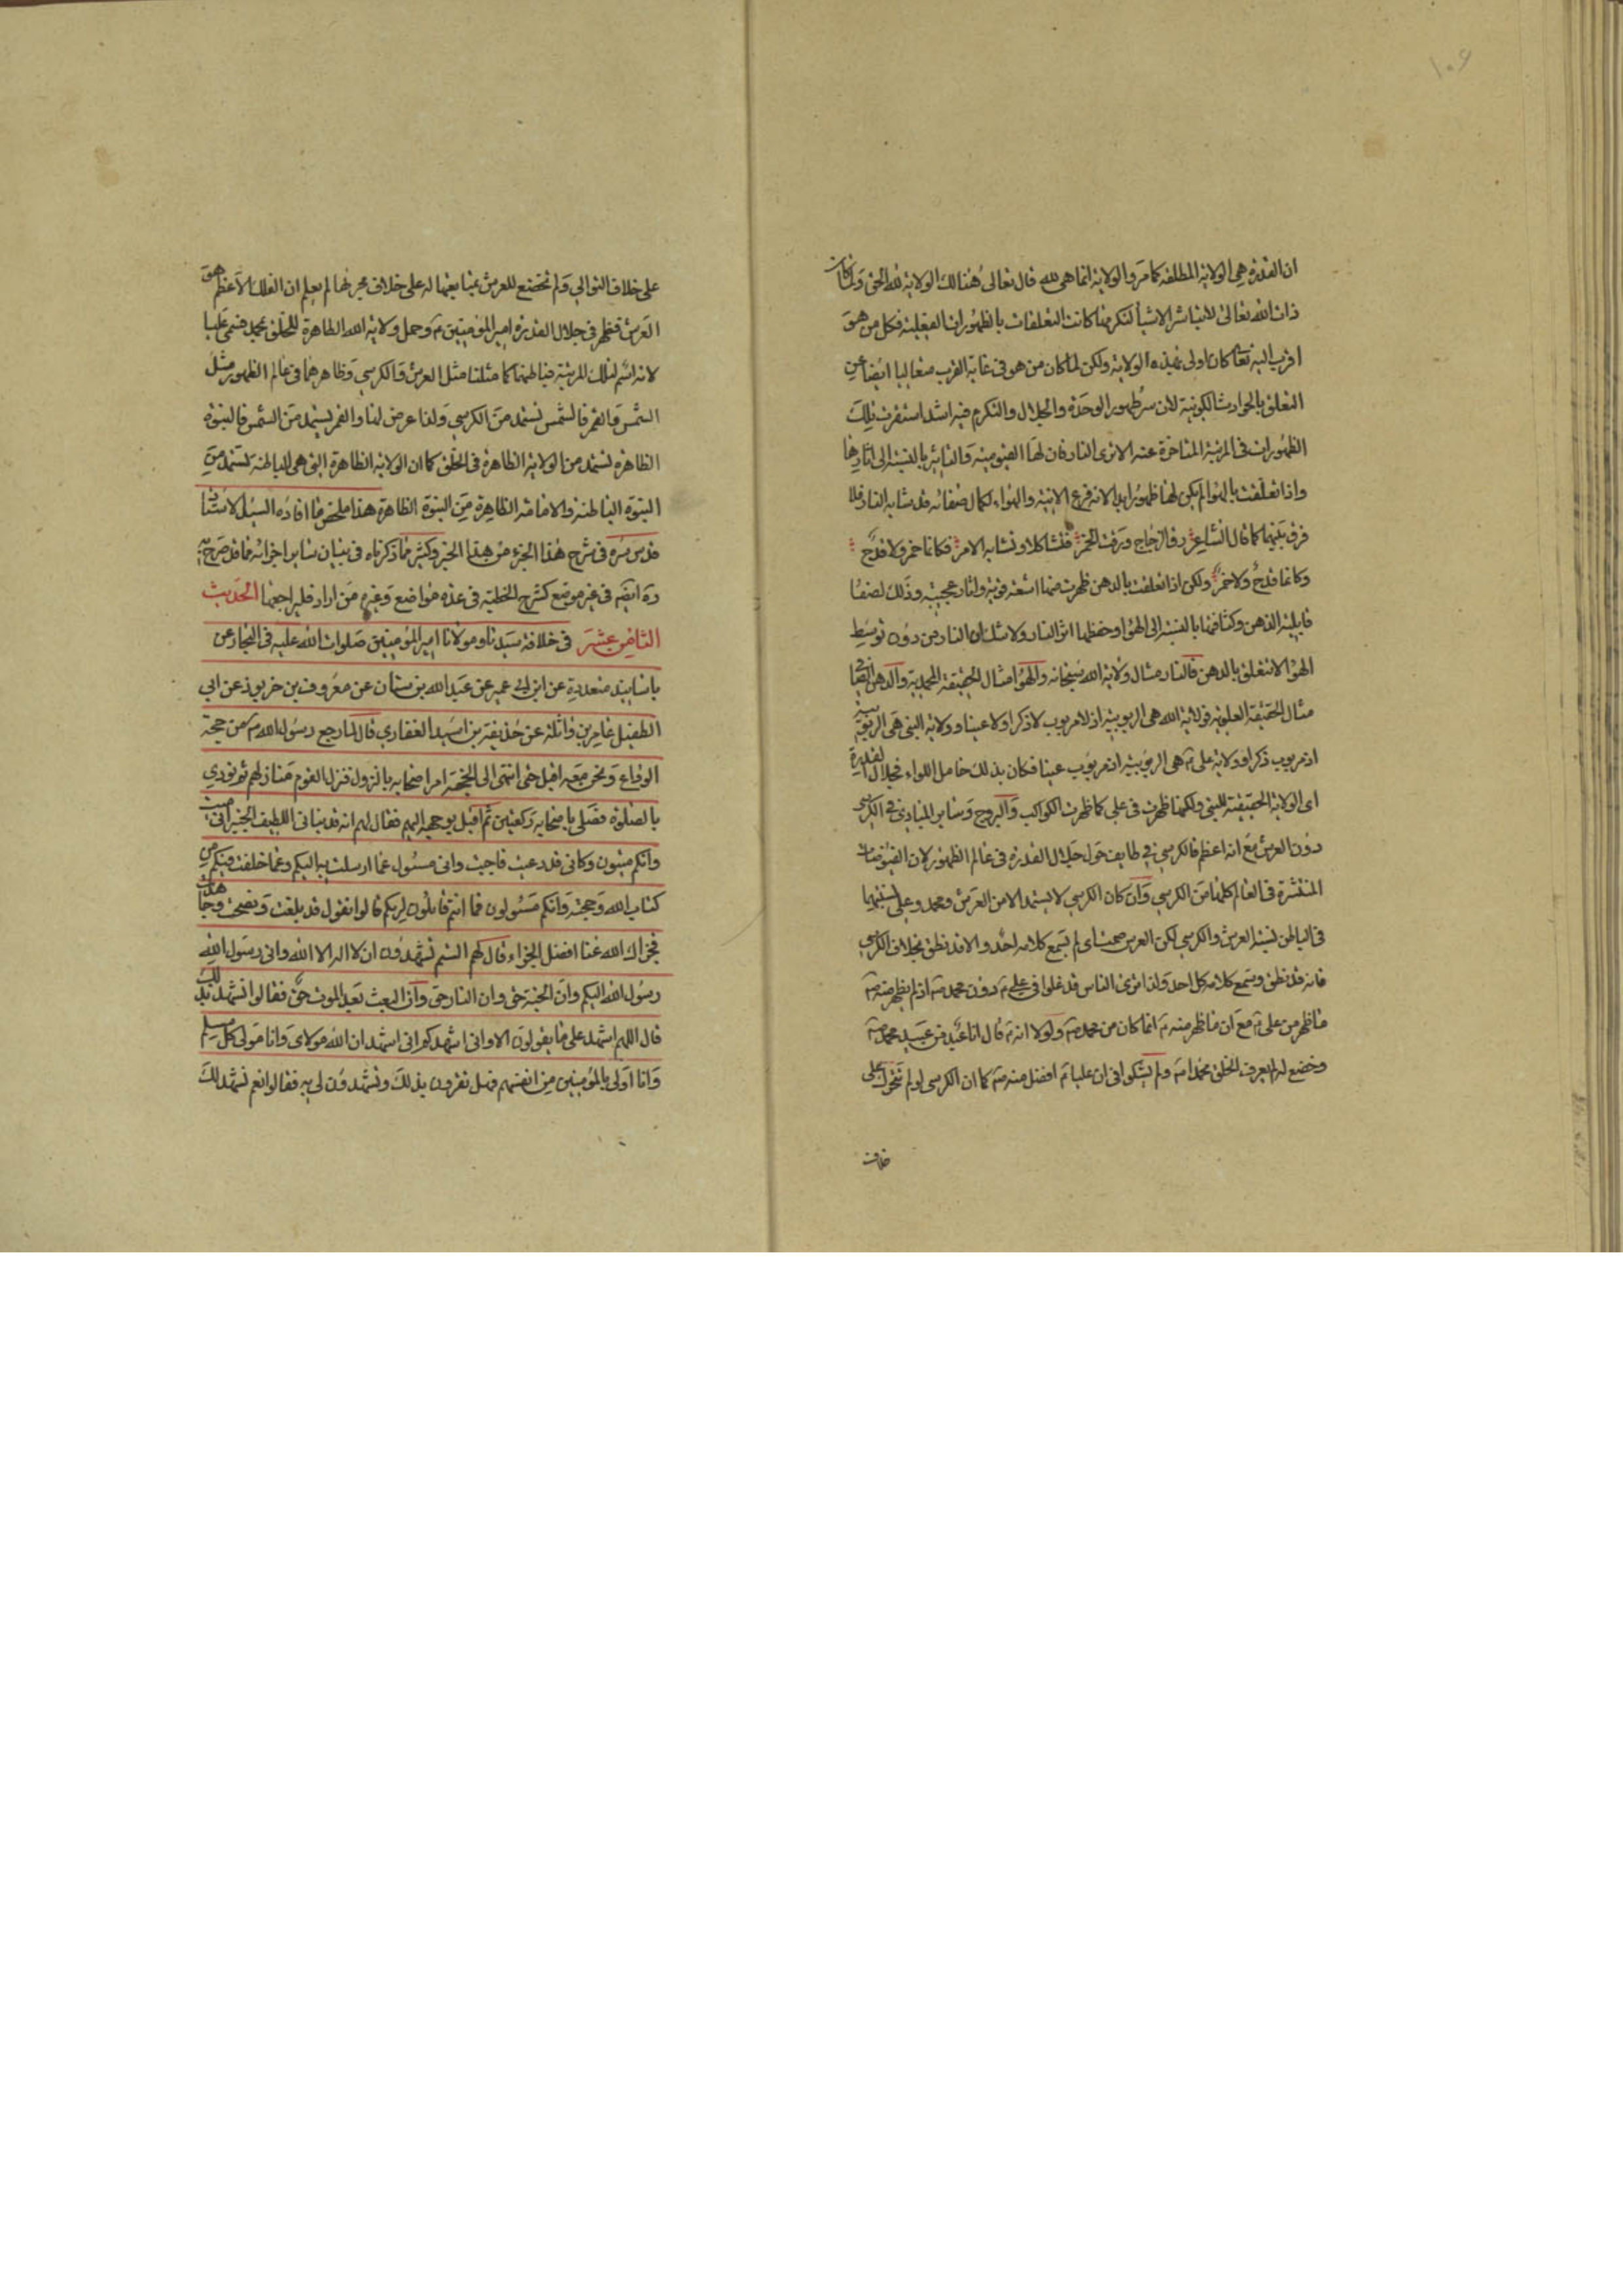 ١٠٦
ان القدرة هي الولاية المطلقة كما مر والولاية انما هي لله قال تعالى هنالك الولاية لله الحق ولما كان
ذات الله تعالى لا تباشر الاشياء لتكرمها كانت التعلقات بالظهورات الفعلية فكل من هو
اقرب اليه تعالى كان اولى بهذه الولاية ولكن لما كان من هو في غاية القرب متعاليا ايضا عن
التعلق بالحوادث الكونية لان سر ظهور الوحدة والجلال والتكرم فيه اشد استقرت تلك
الظهورات في المرتبة المتأخرة عنه الا ترى النار فان لها القيومية والتأثير بالنسبة الى اثارها
واذا تعلقت بالهواء لم يكن لها ظهور ابدا لانه فرع الانية والهواء لكمال صفائه قد شابه النار فلا
فرق بينهما كما قال الشاعر رق الزجاج ورقت الخمر فتشاكلا وتشابه الامر فكانما خمر ولا قدح
وكانما قدح ولا خمر ولكن اذا تعلقت بالدهن ظهرت منها اشعة قوية واثار عجيبة وذلك لصفا
قابلية الدهن وكثافتها بالنسبة الى الهواء وحفظها اثر النار ولا شك ان النار من دون توسط
الهواء لا تتعلق بالدهن فالنار مثال ولاية الله سبحانه والهواء مثال الحقيقة المحمدية والدهن الصافي
مثال الحقيقة العلوية فولاية الله هي الربوبية اذ لا مربوب لا ذكرا ولا عينا وولاية النبي هي الربوبية
اذ مربوب ذكرا وولاية علي ع هي الربوبية اذ مربوب عينا فكان بذلك حامل اللواء فجلال القدرة
اى الولاية الحقيقية للنبي ولكنها ظهرت في علي كما ظهرت الكواكب والبروج وساير المبادي في الكرسي
دون العرش مع انه اعظم فالكرسي في طايف حول جلال القدرة في عالم الظهور لان الفيوضات
المنتشرة في العالم كلها من الكرسي وان كان الكرسي لا يستمد الا من العرش ومحمد وعلي نسبتهما
في الباطن نسبة العرش والكرسي لكن العرش صمت اى لم يسمع كلامه احد والا قد نطق بخلاف الكرسي
فانه قد نطق وسمع كلامه كل احد ولذا ترى الناس قد غلوا في علي ع دون محمد ص اذ لم يظهر منه ص
ما ظهر من علي ع مع ان ما ظهر منه ع انما كان من محمد ص ولولا انه ع قال انا عبد من عبيد محمد ص
وخضع له لم يعرف الخلق محمدا ص ولم يشكوا في ان عليا ع افضل منه ص كما ان الكرسي لو لم تتحرك على
خلاف
على خلاف التوالي ولم تخضع للعرش بمتابعتها له على خلاف مجريها لم يعلم ان الفلك الاعظم هو
العرش فظهر في جلال القدرة امير المؤمنين ع وحمل ولاية الله الظاهرة للخلق بمحمد فسمي عليا
لانه اسم لتلك المرتبة هنا باطنهما كما مثلنا مثل العرش والكرسي وظاهرهما في عالم الظهور مثل
الشمس والقمر فالشمس تستمد من الكرسي ولذا عرض لنا والقمر يستمد من الشمس فالنبوة
الظاهرة تستمد من الولاية الظاهرة في الخلق كما ان الولاية الظاهرة التي هي الباطنة تستمد من
النبوة الباطنة والامامة الظاهرة من النبوة الظاهرة هذا ملخص ما افاده السيد الاستاد
قدس سره في شرح هذا الجزء من هذا الخبر وكثير مما ذكرناه في بيان ساير اجزائه مما قد صرح به
ره ايضم في غير موضع كشرح الخطبة في عدة مواضع وغيره من اراد فليراجعها الحديث
الثامن عشر في خلافة سيدنا ومولانا امير المؤمنين صلوات الله عليه في البحار عن
باسانيد متعددة عن ابن ابي عمير عن عبد الله بن سنان عن معروف بن خربوذ عن ابي
الطفيل عامر بن واثلة عن حذيفة بن اسيد الغفاري قال لما رجع رسول الله ص من حجة
الوداع ونحن معه اقبل حتى انتهى الى الجحفة امر اصحابه بالنزول فنزل القوم منازلهم ثم نودي
بالصلوة فصلى باصحابه ركعتين ثم اقبل بوجهه اليهم فقال لهم انه قد نبأني اللطيف الخبير اني ميت
وانكم ميتون وكاني قد دعيت فاجبت واني مسئول عما ارسلت به اليكم وعما خلفت فيكم من
كتاب الله وحجته وانكم مسئولون فما انتم قائلون لربكم قالوا نقول قد بلغت ونصحت وجاهدت
فجزاك الله عنا افضل الجزاء قال لهم الستم تشهدون ان لا اله الا الله واني رسول الله
رسول الله اليكم وان الجنة حق وان النار حق وان البعث بعد الموت حق فقالوا نشهد بذلك
قال اللهم اشهد على ما يقولون الا واني اشهدكم اني اشهد ان الله مولاى وانا مولى كل مسلم
وانا اولى بالمؤمنين من انفسهم فهل تقرون بذلك وتشهدون لي به فقالوا نعم نشهد لك